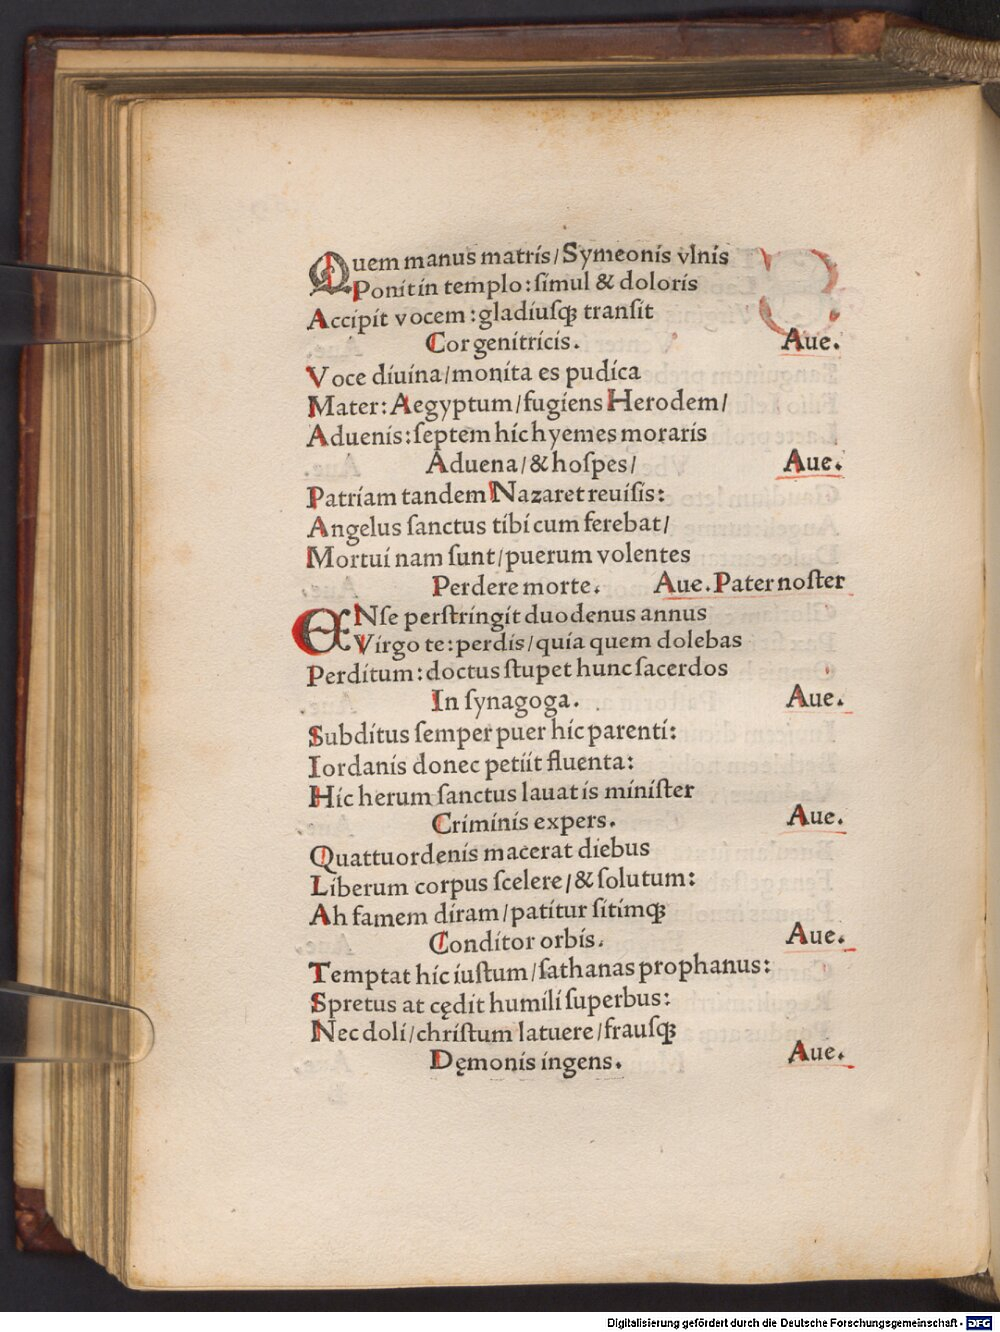 Quem manus matris/Symeonis vlnis
Ponit in templo:ſimul & doloris
Accipit vocem:gladiuſqꝫ tranſit
Cor genitricis. Aue.
Voce diuina/monita es pudica
Mater:Aegyptum/fugiens Herodem/
Aduenis:ſeptem hic hyemes moraris
Aduena/& hoſpes/ Aue.
Patriam tandem Nazaret reuiſis:
Angelus ſanctus tibi cum ferebat/
Mortui nam ſunt/puerum volentes
Perdere morte. Aue.Pater noſter
ENſe perſtringit duodenus annus
Virgo te:perdis/quia quem dolebas
Perditum:doctus ſtupet hunc ſacerdos
In ſynagoga. Aue.
Subditus ſemper puer hic parenti:
Iordanis donec petiit fluenta:
Hic herum ſanctus lauat is miniſter
Criminis expers. Aue.
Quattuordenis macerat diebus
Liberum corpus ſcelere/& ſolutum:
Ah famem diram/patitur ſitimqꝫ
Conditor orbis. Aue.
Temptat hic iuſtum/ſathanas prophanus:
Spretus at cędit humili ſuperbus:
Nec doli/chriſtum latuere/frauſqꝫ
Dęmonis ingens. Aue.
Digitalisierung gefördert durch die Deutsche Forschungsgemeinschaft - DFG